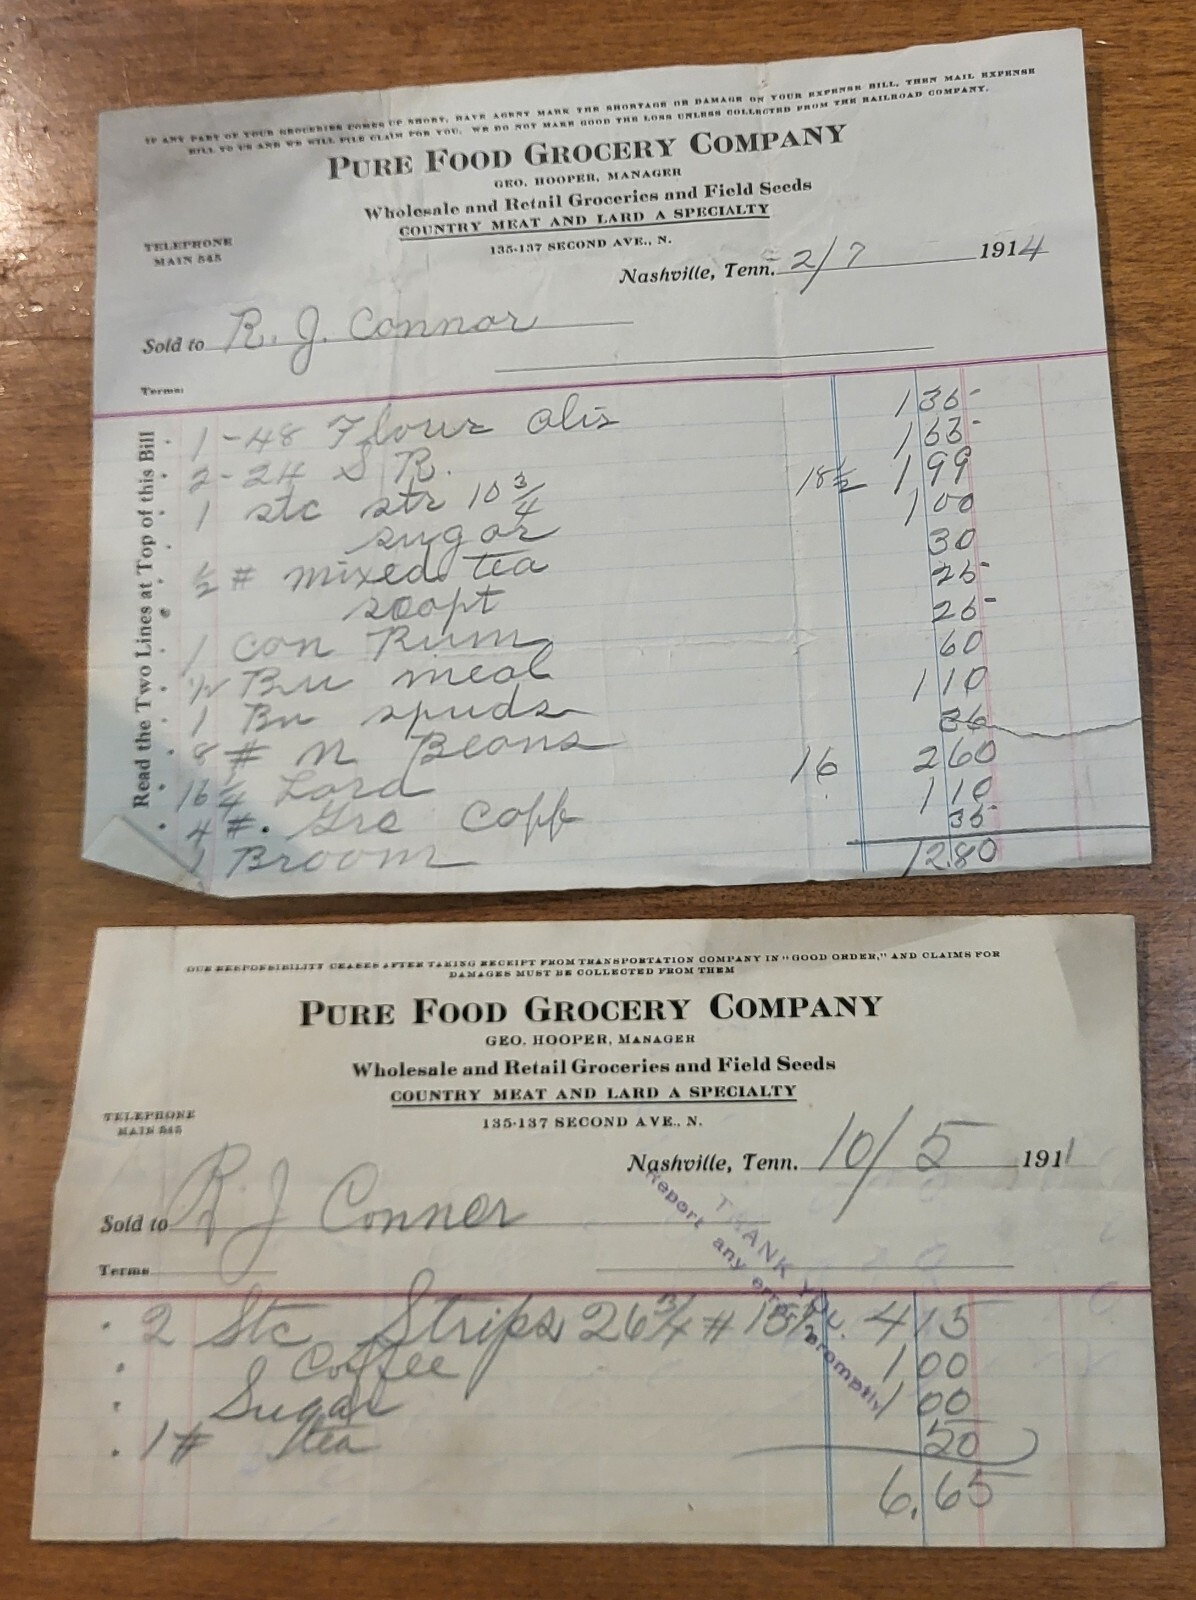 IF ANY PART OF YOUR GROCERIES COMES UP SHORT, HAVE AGENT MARK THE SHORTAGE OR DAMAGE ON YOUR EXPENSE BILL, THEN MAIL EXPENSE
BILL TO US AND WE WILL FILE CLAIM FOR YOU. WE DO NOT MAKE GOOD THE LOSS UNLESS COLLECTED FROM THE RAILROAD COMPANY.
PURE FOOD GROCERY COMPANY
GEO. HOOPER, MANAGER
Wholesale and Retail Groceries and Field Seeds
COUNTRY MEAT AND LARD A SPECIALTY
135-137 SECOND AVE., N.
TELEPHONE
MAIN 545
Nashville, Tenn. 2/7 1914
Sold to R. J. Connor
Terms:
Read the Two Lines at Top of this Bill
1 - 48 Flour 1 35
2 - 24 S R. 1 55
1 stc str 10 3/4 18 1/2 1 99
sugar 1 00
1/2 # mixed tea 30
25
1 can 25
1/2 Bu meal 60
1 Bu spuds 1 10
8 # N Beans 36
16 1/4 Lard 16 2 60
4 #. Gro Coff 1 10
1 Broom 35
12.80
OUR RESPONSIBILITY CEASES AFTER TAKING RECEIPT FROM TRANSPORTATION COMPANY IN "GOOD ORDER," AND CLAIMS FOR
DAMAGES MUST BE COLLECTED FROM THEM
PURE FOOD GROCERY COMPANY
GEO. HOOPER, MANAGER
Wholesale and Retail Groceries and Field Seeds
COUNTRY MEAT AND LARD A SPECIALTY
135-137 SECOND AVE., N.
TELEPHONE
MAIN 545
Nashville, Tenn. 10/5 1911
Sold to R J Conner
Terms
THANK YOU.
Report any error promptly
2 Stc Strips 26 3/4 # 15 1/2 4 15
Coffee 1 00
Sugar 1 00
1 # tea 50
6.65